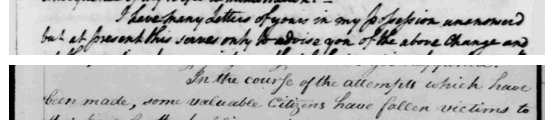 I have many Letters of yours in my possession unanswered
but at present this serves only to advise you of the above Change and
In the course of the attempts which have
been made, some valuable Citizens have fallen victims to